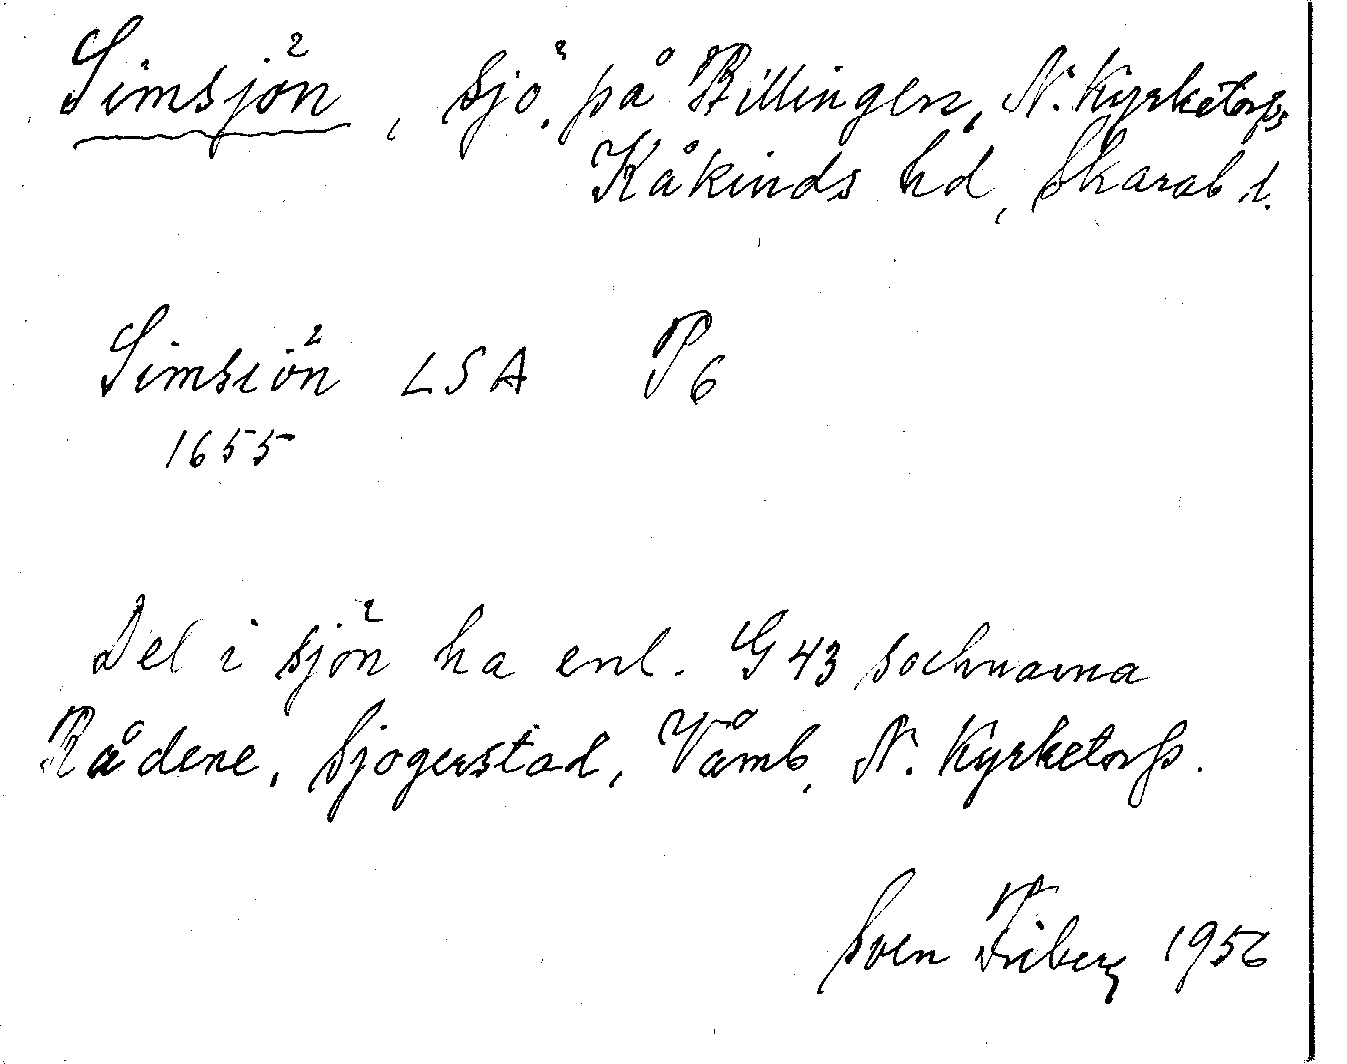 Simsjön, sjö på Billingen, N. Kyrketorps
Kåkinds hd, Skarab l.
Simsiön LSA P6
1655
Del i sjön ha enl. G 43 socknarna
Rådene, Sjogerstad, Våmb, N. Kyrketorp.
Sven Friberg 1956